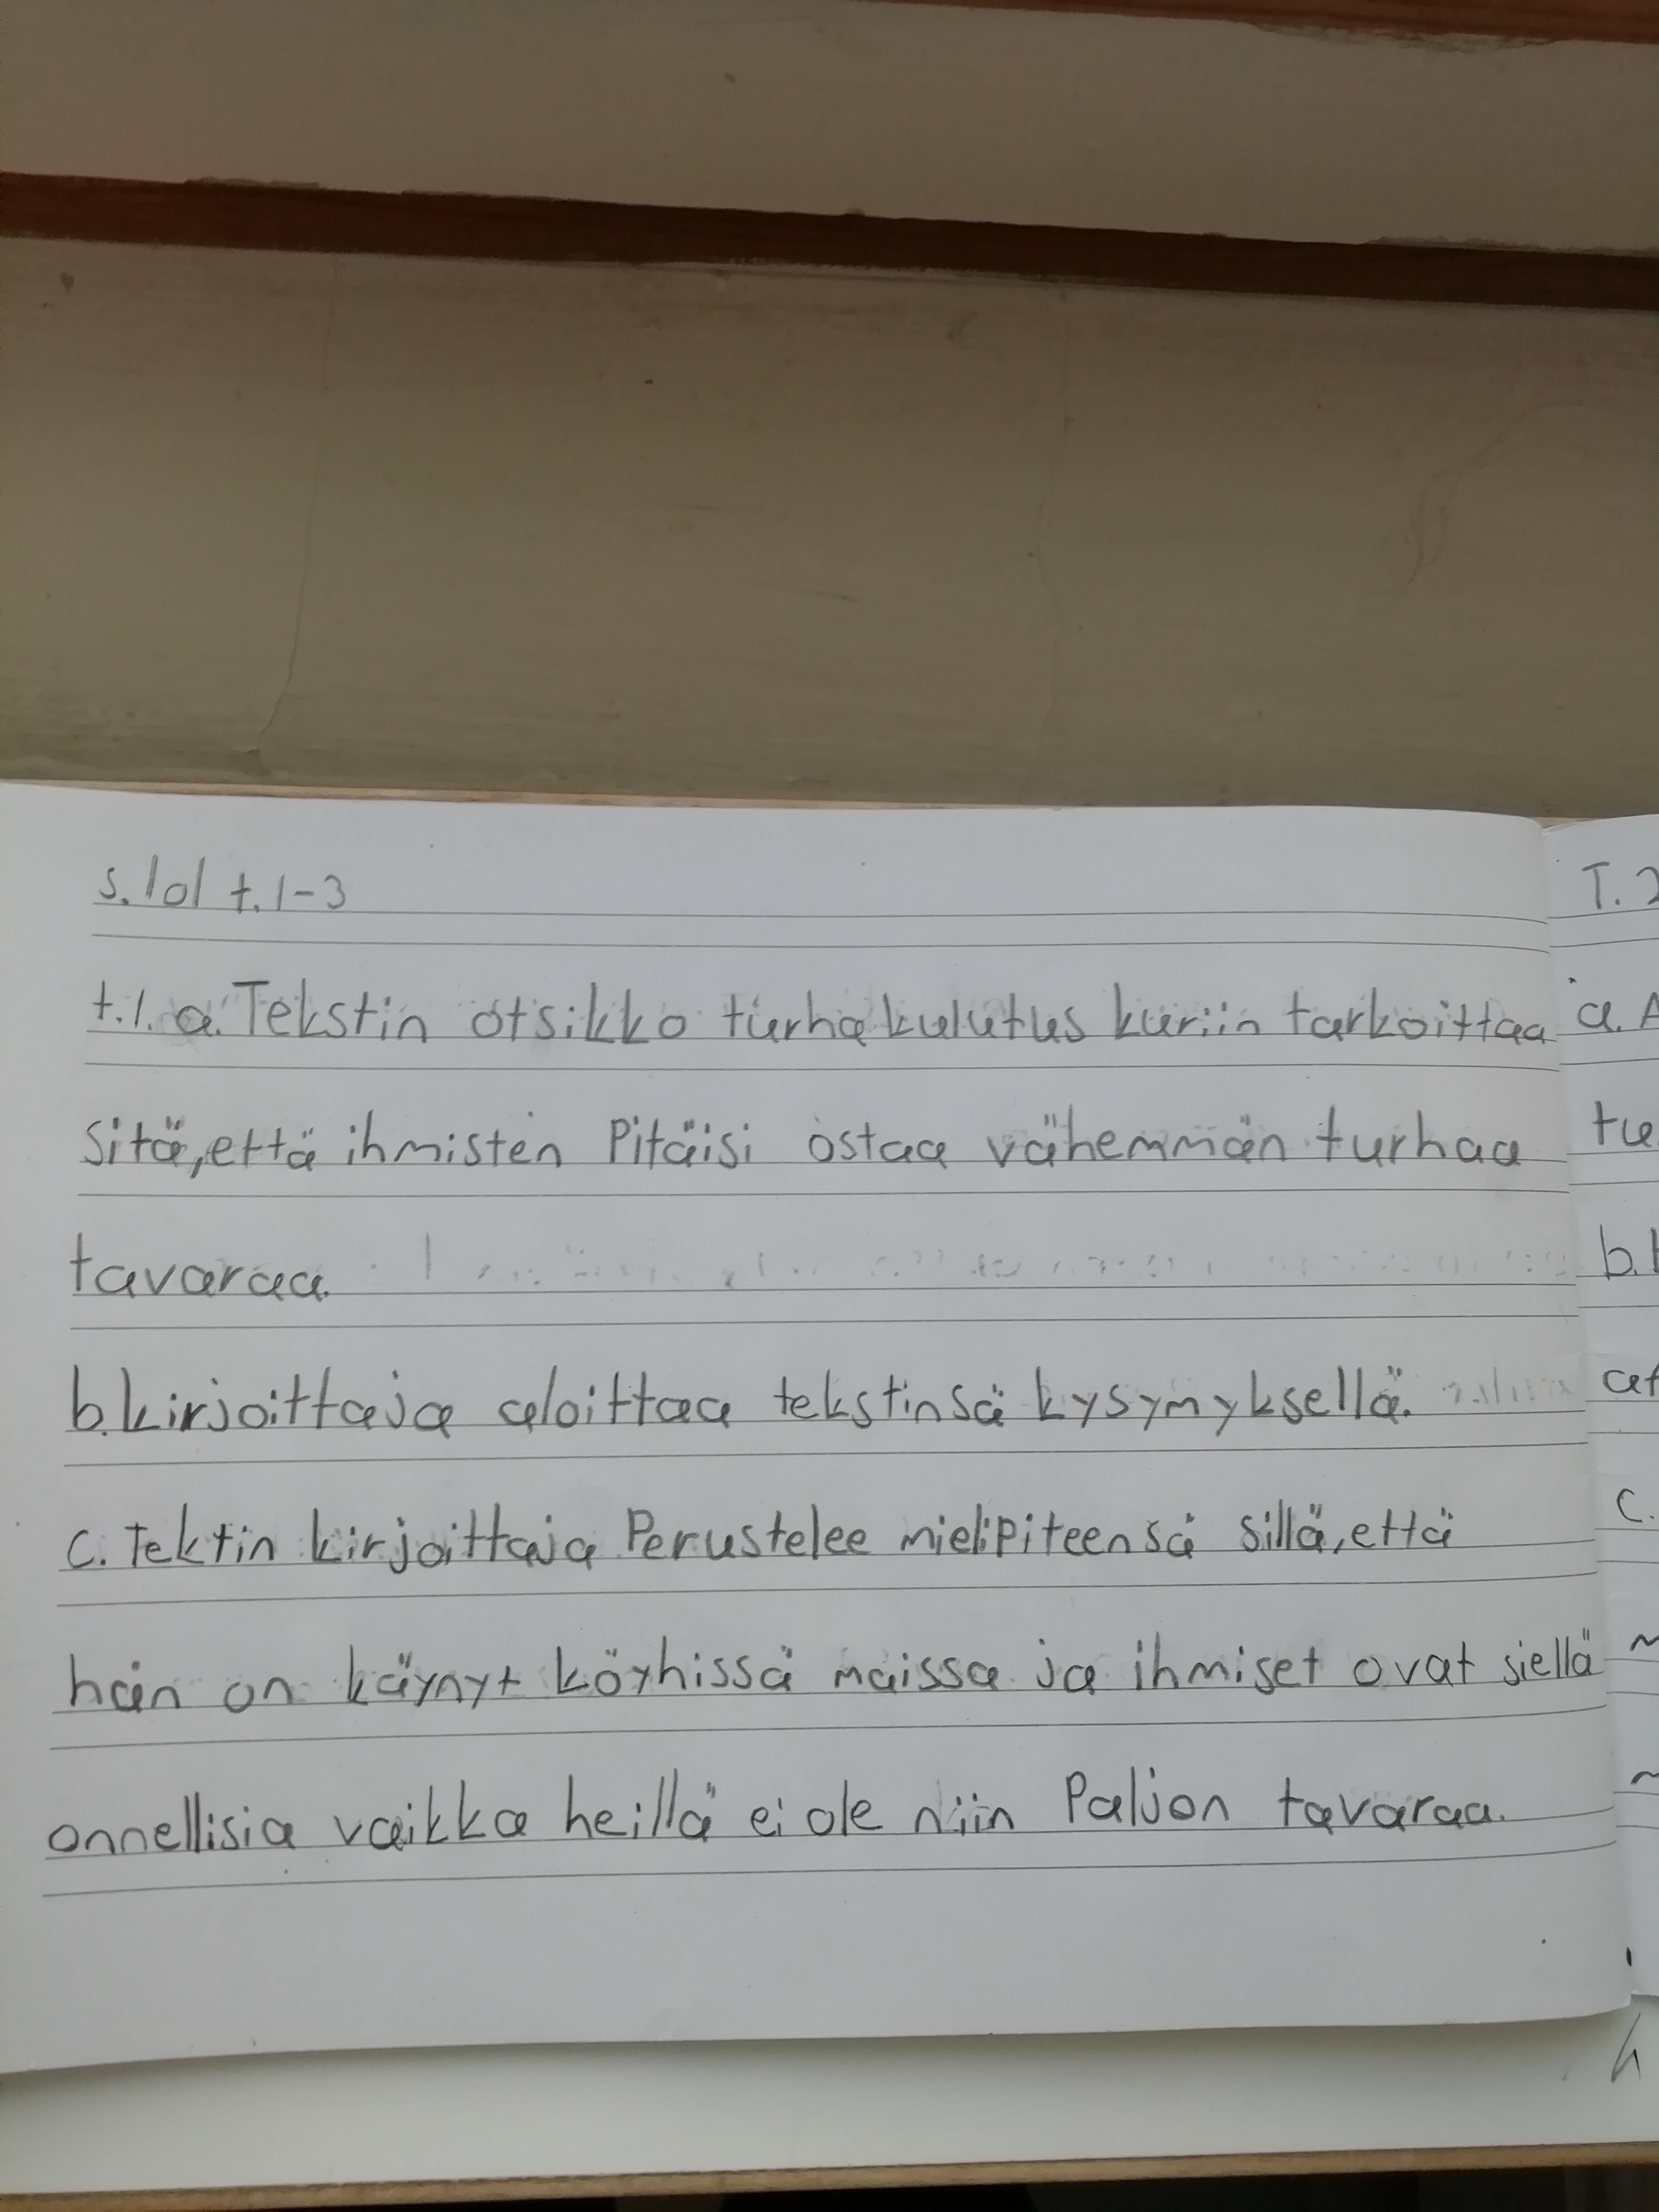 s. 101 t. 1-3
t.1. a. Tekstin otsikko turha kulutus kuriin tarkoittaa
sitä, että ihmisten Pitäisi ostaa vähemmän turhaa
tavaraa.
b. kirjoittaja aloittaa tekstinsä kysymyksellä.
c. Tektin kirjoittaja Perustelee mielipiteensä sillä, että
hän on käynyt köyhissä maissa ja ihmiset ovat siellä
onnellisia vaikka heillä ei ole niin Paljon tavaraa.
T. 2
a. A
tu
b.
c.